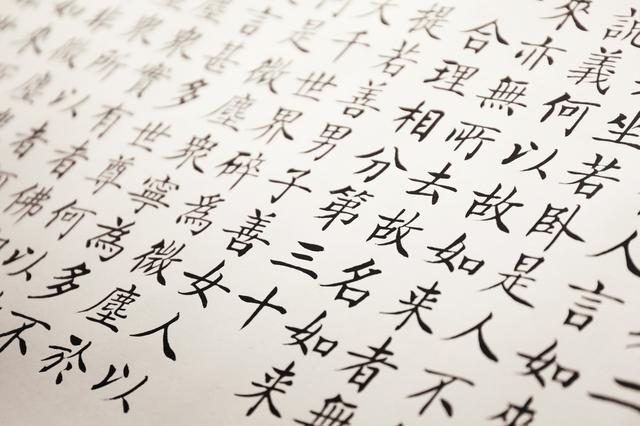 人言如來
坐若臥是人不
說義何以故如來者無
來亦無所去故名如來
合理相分第三十
提若善男子善女人以
大千世界碎為微塵於
是微塵眾寧為多不
言甚多世尊何以
塵眾實有者佛
眾所以者
微塵